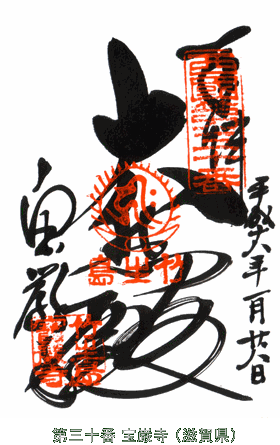 西国第三十番
奉拝
大悲殿
竹生島
平成
年一月
日
竹生島
宝厳寺
第三十番 宝厳寺（滋賀県）